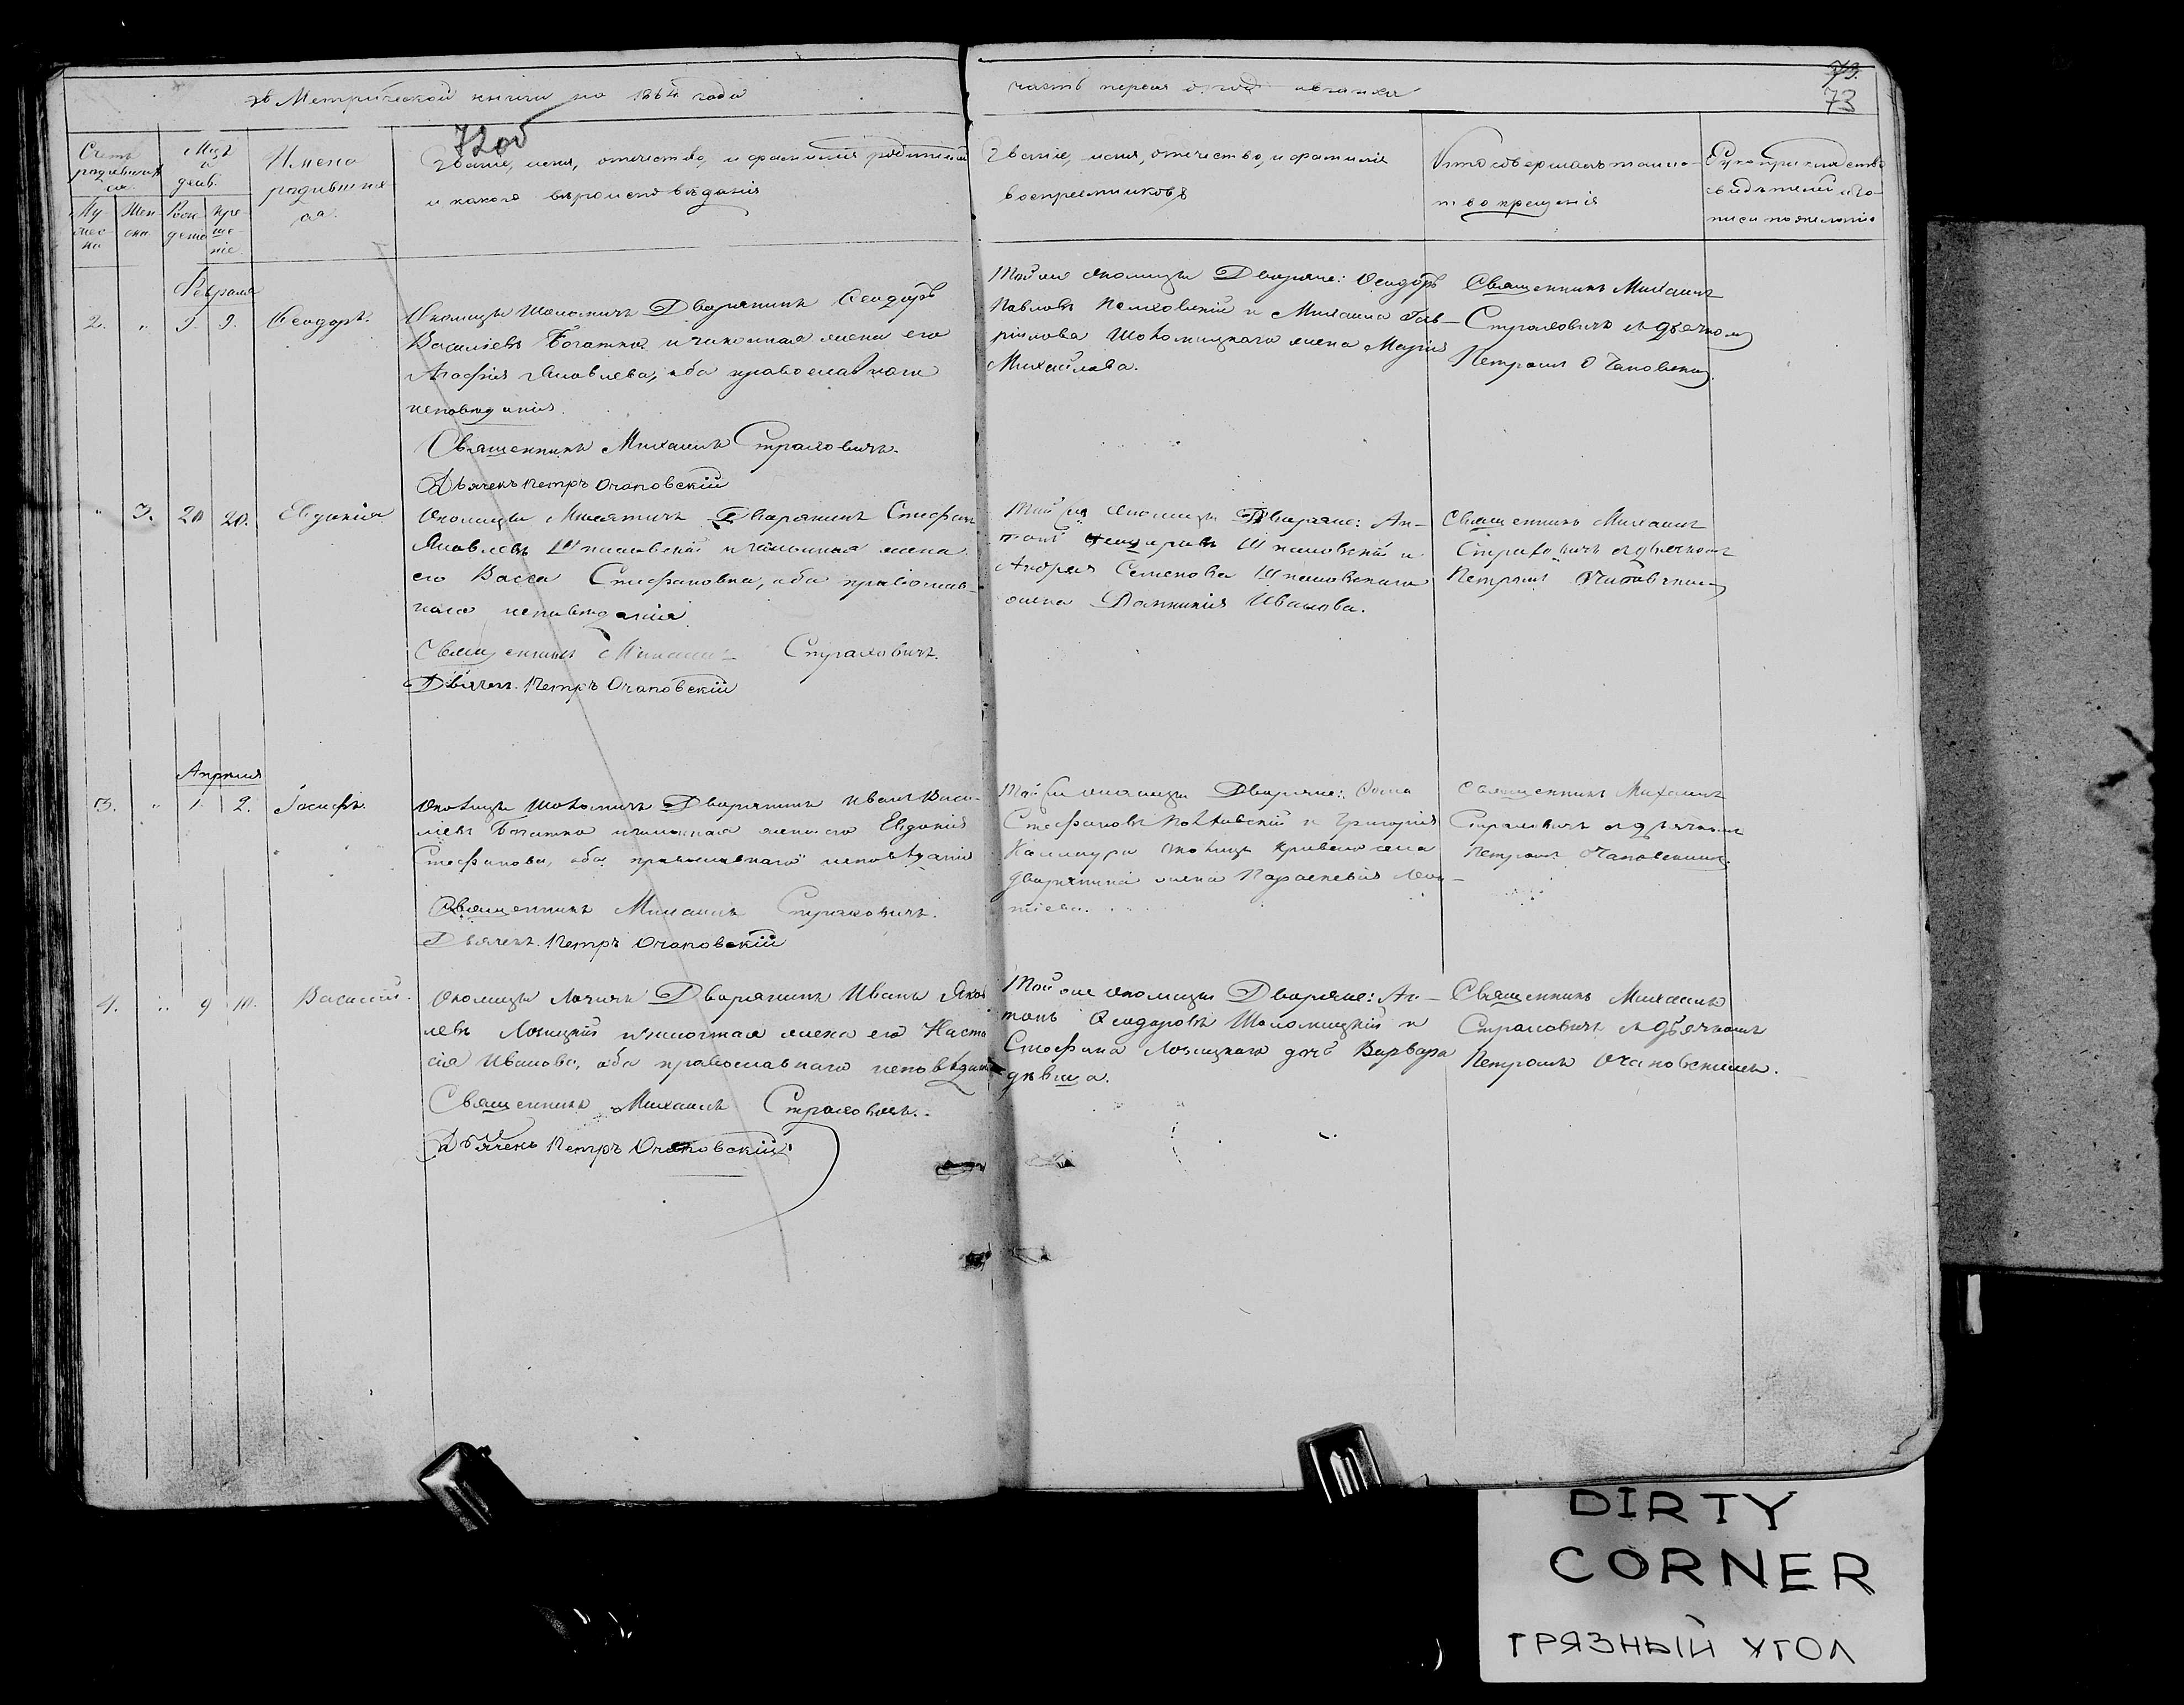 въ Метрической книги на 1864 года
часть первая о
73.
73
72об
Счетъ родившихся.
Мцъ и день.
Имена родившихся
Званіе, имя, отечество, и фамилія родителей
и какого вѣроисповѣданія
Мужеска
Женска
Рожденія
Крещеніе
Званіе, имя, отчество, и фамилія
воспреемниковъ
Кто совершалъ таинство крещенія
Рукоприкладство
свидѣтелей
писи по желанію
Февраля
2. " 9. 9. Ѳеодоръ.
Околицы Шоломичъ Дворянинъ Ѳеодоръ
Васильевъ Богатко и законная жена его
Агафія Яковлева, оба православнаго
исповѣданія.
Священникъ Михаилъ Страховичъ.
Дьячекъ Петръ Очаповскій
Той же околицы Дворяне: Ѳеодоръ
Павловъ и Михаила Гав-
рилова Шоломицкаго жена Марія
Михайлова.
Священникъ Михаилъ
Страховичъ съ дьячкомъ
Петромъ Очаповскимъ
" 3. 20 20. Евдокія
Околицы Дворянинъ Стефанъ
Яковлевъ и законная жена
его Васса Стефановна, оба православ-
наго исповѣданія.
Священникъ Михаилъ Страховичъ.
Дьячекъ Петръ Очаповскій
Той же околицы Дворяне: Ан-
тонъ и
Андрея Семенова
жена Домникія Иванова.
Священникъ Михаилъ
Страховичъ съ дьячкомъ
Петромъ Очаповскимъ
Апрѣля
3. " 1. 2. Іосифъ.
Околицы Шоломичъ Дворянинъ Иванъ Васи-
льевъ Богатко и законная жена его Евдокія
Стефанова, оба православнаго исповѣданія
Священникъ Михаилъ Страховичъ.
Дьячекъ Петръ Очаповскій
Той же околицы Дворяне: Ѳома
Стефановъ и Григорія
околицы
дворянина жена Параскевія Леон-
тіева.
Священникъ Михаилъ
Страховичъ съ дьячкомъ
Петромъ Очаповскимъ
4. " 9 10. Василій.
Околицы Дворянинъ Иванъ Яков
левъ и законная жена его Наста
сія Иванова, оба православнаго исповѣданія
Священникъ Михаилъ Страховичъ.
Дьячекъ Петръ Очаповскій
Той же околицы Дворяне: Ан-
тонъ Ѳеодоровъ Шоломицкій и
Стефана дочь Варвара
дѣвица.
Священникъ Михаилъ
Страховичъ съ дьячкомъ
Петромъ Очаповскимъ.
DIRTY
CORNER
ГРЯЗНЫЙ УГОЛ